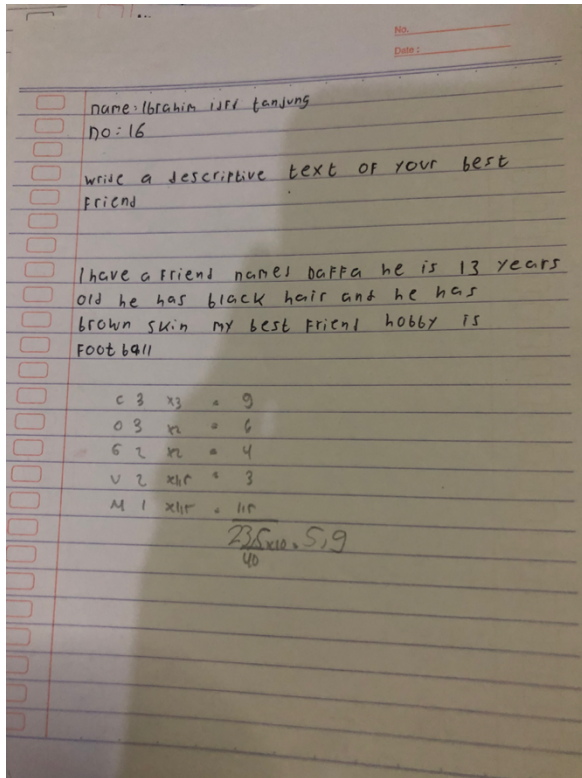 No.
Date :
name: Ibrahim tanjung
no: 16
write a descriptive text of your best
friend
I have a friend names Daffa he is 13 years
old he has black hair and he has
brown skin my best friend hobby is
football
C 3 x3 = 9
O 3 x2 = 6
G 2 x2 = 4
V 2 x1,5 = 3
M 1 x1,5 = 1,5
23,5 x10 = 5,9
40